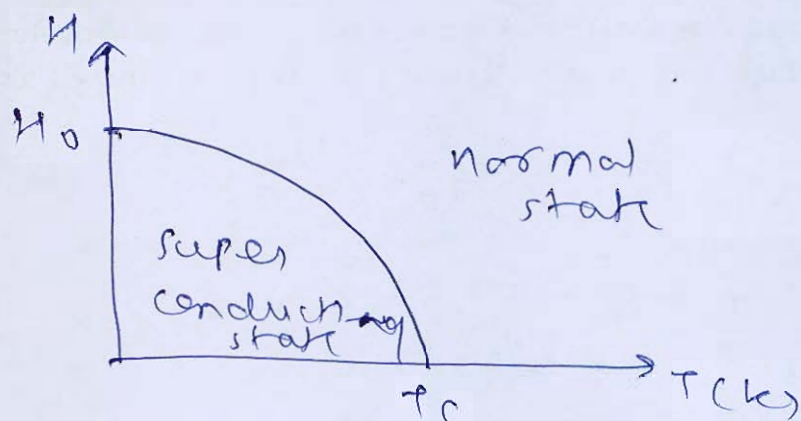 H
H0
normal
state
super
conducting
state
Tc
T(K)